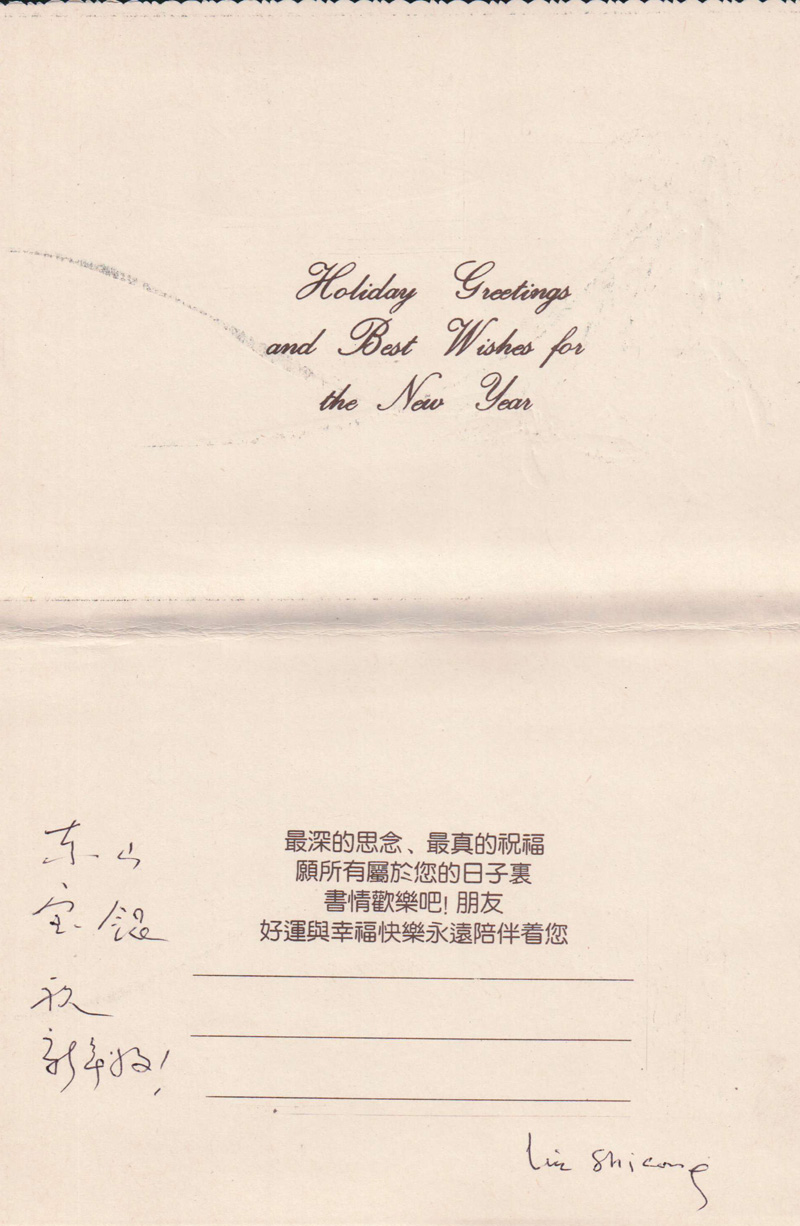 Holiday Greetings
and Best Wishes for
the New Year
最深的思念、最真的祝福
願所有屬於您的日子裏
書情歡樂吧!朋友
好運與幸福快樂永遠陪伴着您
东山
宝银
祝
新年好!
Lin Shicong